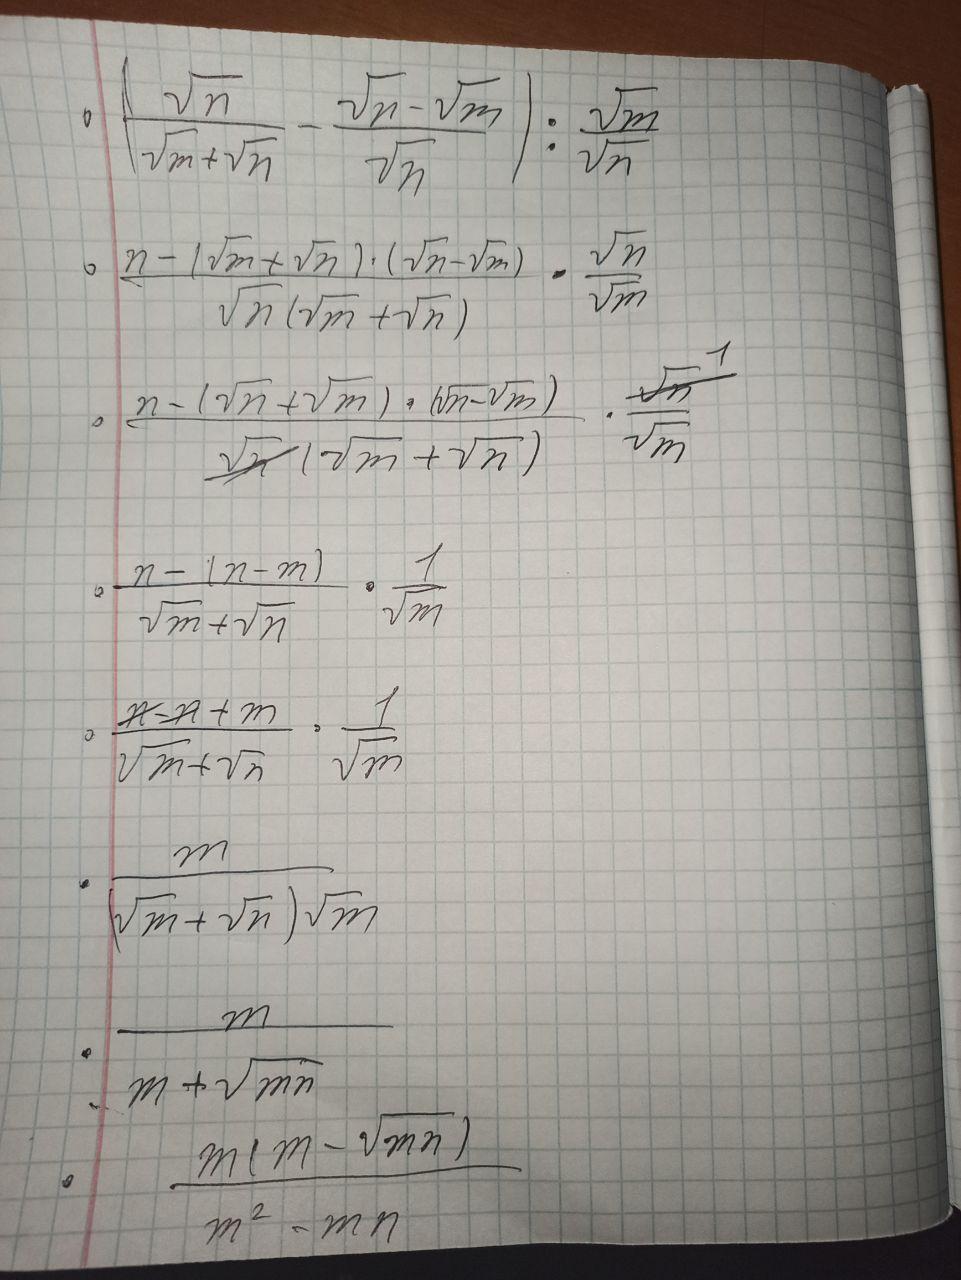 (√n/(√m+√n) - (√n-√m)/√n) : √m/√n
(n-(√m+√n)·(√n-√m))/(√n(√m+√n)) · √n/√m
(n-(√n+√m)·(√n-√m))/(√n(√m+√n)) · √n/√m 1
(n-(n-m))/(√m+√n) · 1/√m
(n-n+m)/(√m+√n) · 1/√m
m/((√m+√n)√m)
m/(m+√mn)
m(m-√mn)/(m²-mn)